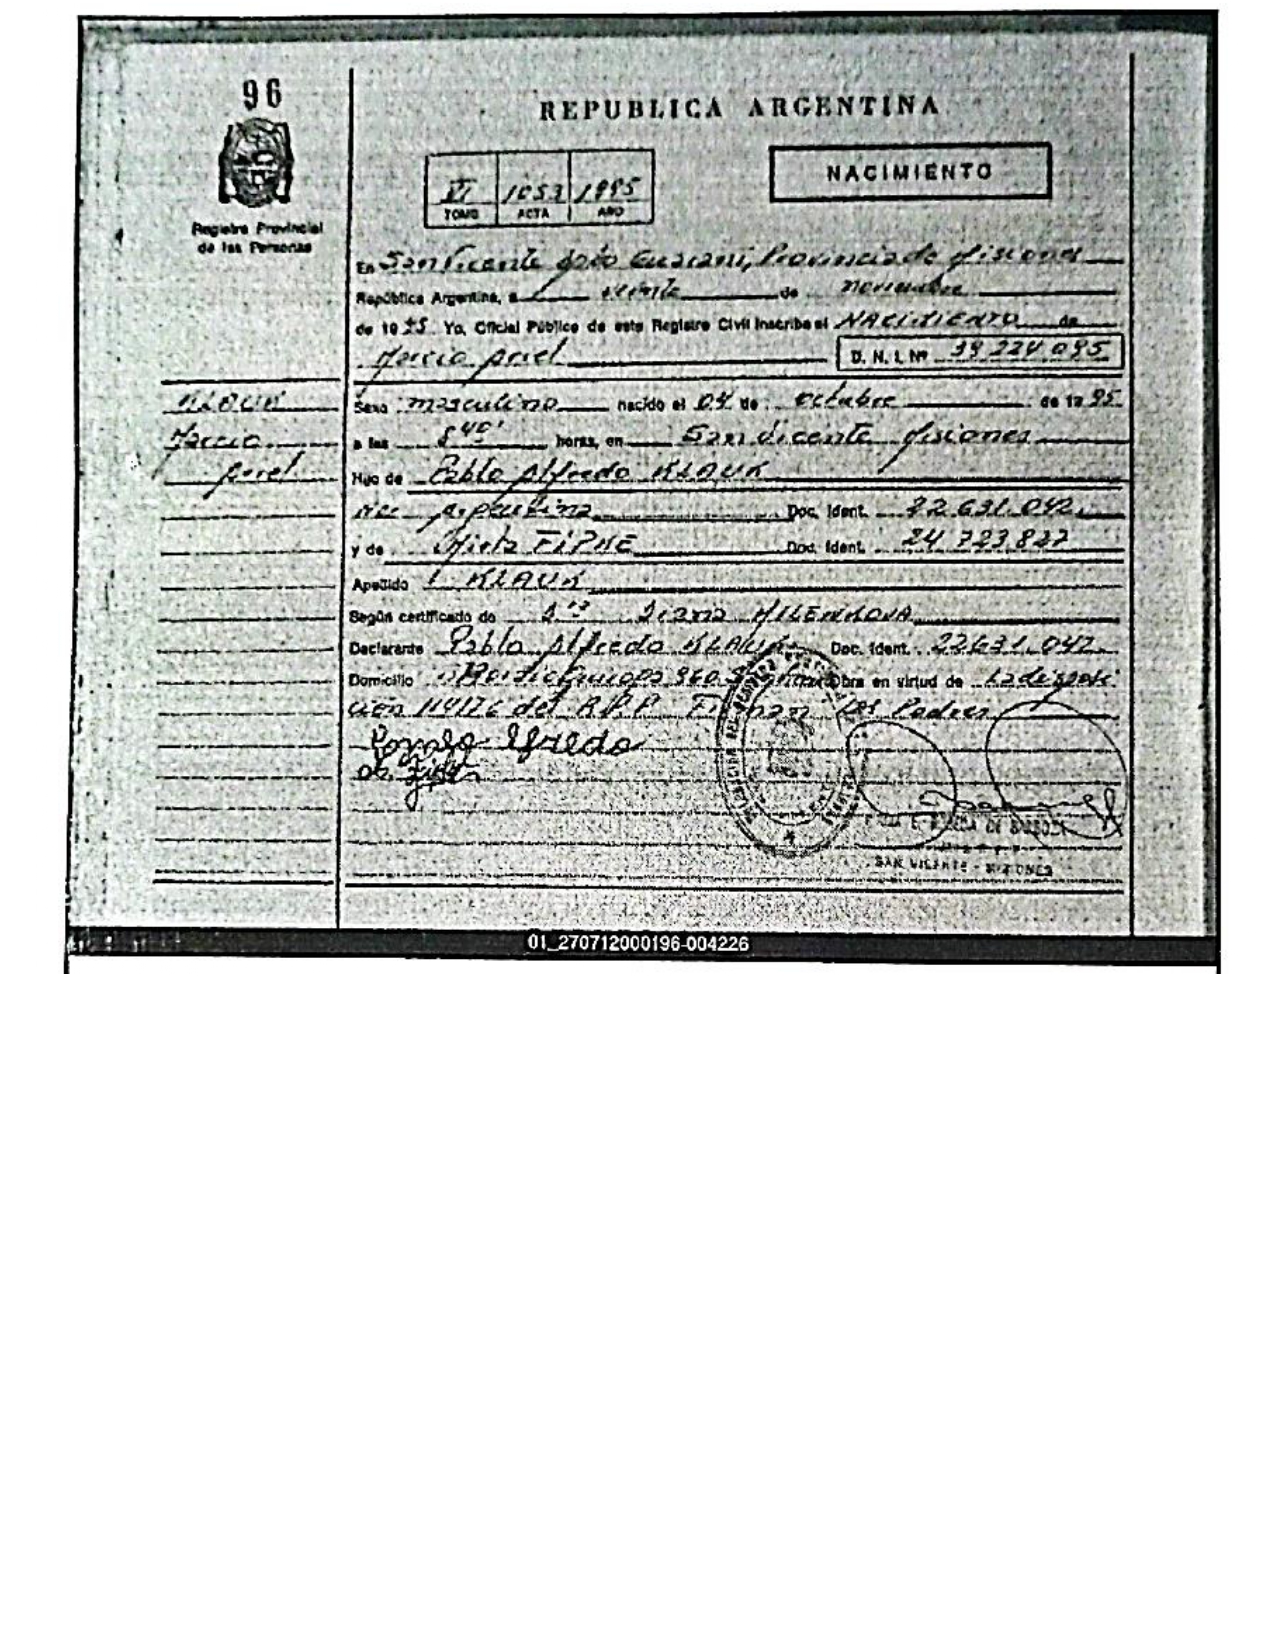 96
REPUBLICA ARGENTINA
NACIMIENTO
VI 1053 1995
TOMO ACTA AÑO
Registro Provincial
de las Personas
En San Vicente Dpto Guarani, Provincia de Misiones
República Argentina, a veinte de noviembre
de 1995 Yo, Oficial Público de este Registro Civil inscribo el NACIMIENTO de
D. N. I. Nº 39.224.095
KLAUK
Sexo masculino nacido el 04 de octubre de 1995
a las 8 40' horas, en San Vicente Misiones
Hijo de Pablo Alfredo KLAUK
Nac Argentina Doc. Ident. 22.631.042
y de Mirta FIPKE Doc. Ident. 24.723.827
Apellido KLAUK
Según certificado de Diana
Declarante Pablo Alfredo KLAUK Doc. Ident. 22.631.042
Domicilio 960 Obra en virtud de La disposi
ción 114/76 del R.P.P. Firman Los Padres
SAN VICENTE - MISIONES
01_270712000196-004226